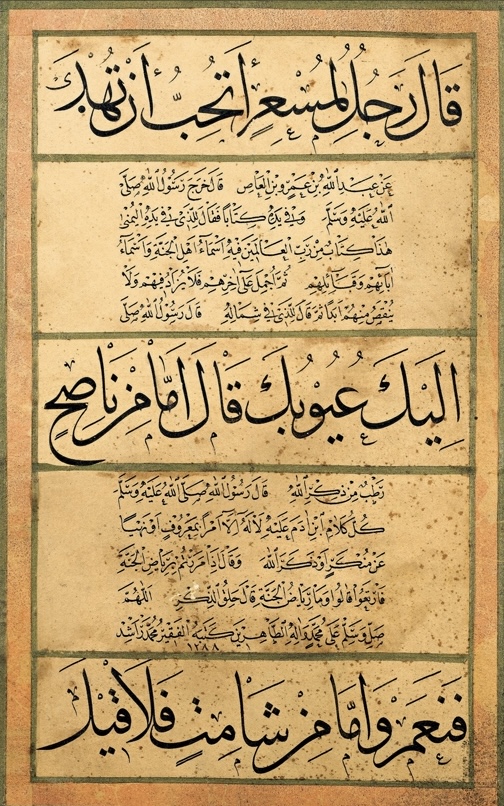 قَالَ رَجُلٌ لِمُسْعِرٍ أَتُحِبُّ أَنْ تُهْدَ
عَنْ عَبْدِ اللهِ بْنِ عَمْرِو بْنِ الْعَاصِ قَالَ خَرَجَ رَسُولُ اللهِ صَلَّى
اللهُ عَلَيْهِ وَسَلَّمَ وَفِي يَدِهِ كِتَابًا فَقَالَ لِلَّذِي فِي يَدِهِ الْيُمْنَى
هٰذَا كِتَابٌ مِنْ رَبِّ الْعَالَمِينَ فِيهِ أَسْمَاءُ أَهْلِ الْجَنَّةِ وَأَسْمَاءُ
اٰبَائِهِمْ وَقَبَائِلِهِمْ ثُمَّ أُجْمِلَ عَلَى اٰخِرِهِمْ فَلَا يُزَادُ فِيهِمْ وَلَا
يُنْقَصُ مِنْهُمْ أَبَدًا ثُمَّ قَالَ لِلَّذِي فِي شِمَالِهِ قَالَ رَسُولُ اللهِ صَلَّى
إِلَيْكَ عُيُوبُكَ قَالَ أَمَّا مِنْ نَاصِحٍ
رَطْبٌ مِنْ ذِكْرِ اللهِ قَالَ رَسُولُ اللهِ صَلَّى اللهُ عَلَيْهِ وَسَلَّمَ
كُلُّ كَلَامِ ابْنِ اٰدَمَ عَلَيْهِ لَا لَهُ إِلَّا أَمْرًا بِمَعْرُوفٍ أَوْ نَهْيًا
عَنْ مُنْكَرٍ أَوْ ذِكْرَ اللهِ وَقَالَ إِذَا مَرَرْتُمْ بِرِيَاضِ الْجَنَّةِ
فَارْتَعُوا قَالُوا وَمَا رِيَاضُ الْجَنَّةِ قَالَ حِلَقُ الذِّكْرِ اللّٰهُمَّ
صَلِّ وَسَلِّمْ عَلَى مُحَمَّدٍ وَاٰلِهِ الطَّاهِرِينَ كَتَبَهُ الْفَقِيرُ مُحَمَّد رَاشِد
١٢٨٨
فَنَعَمْ وَأَمَّا مِنْ شَامِتٍ فَلَا قِيلَ